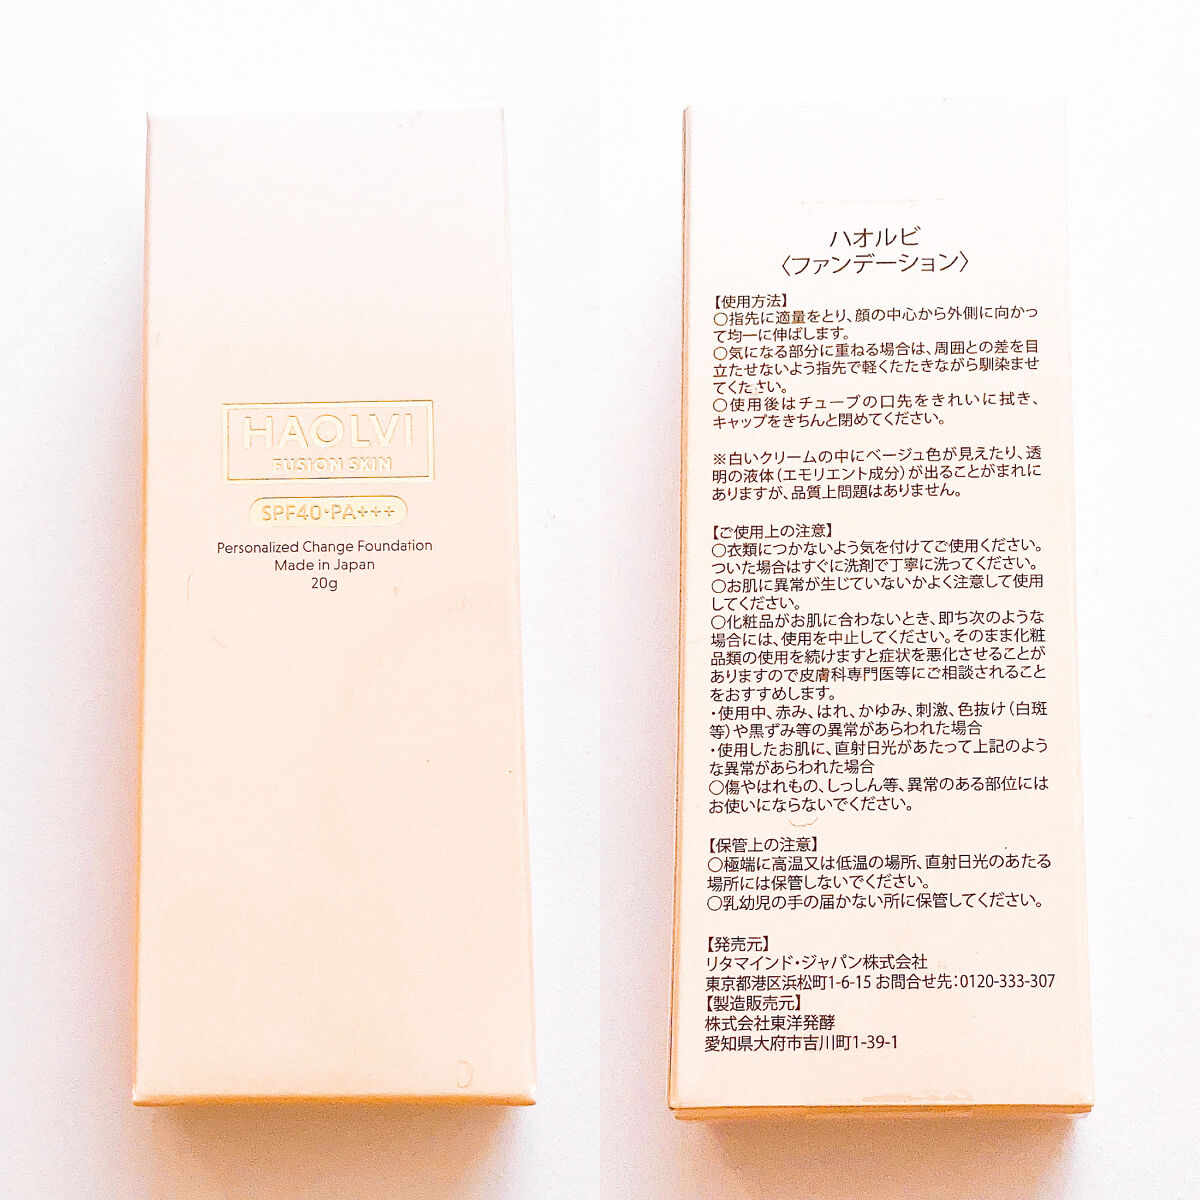 HAOLVI
FUSION SKIN
SPF40・PA+++
Personalized Change Foundation
Made in Japan
20g
ハオルビ
〈ファンデーション〉
【使用方法】
○指先に適量をとり、顔の中心から外側に向かっ
て均一に伸ばします。
○気になる部分に重ねる場合は、周囲との差を目
立たせないよう指先で軽くたたきながら馴染ませ
てください。
○使用後はチューブの口先をきれいに拭き、
キャップをきちんと閉めてください。
※白いクリームの中にベージュ色が見えたり、透
明の液体(エモリエント成分)が出ることがまれに
ありますが、品質上問題はありません。
【ご使用上の注意】
○衣類につかないよう気を付けてご使用ください。
ついた場合はすぐに洗剤で丁寧に洗ってください。
○お肌に異常が生じていないかよく注意して使用
してください。
○化粧品がお肌に合わないとき、即ち次のような
場合には、使用を中止してください。そのまま化粧
品類の使用を続けますと症状を悪化させることが
ありますので皮膚科専門医等にご相談されること
をおすすめします。
・使用中、赤み、はれ、かゆみ、刺激、色抜け(白斑
等)や黒ずみ等の異常があらわれた場合
・使用したお肌に、直射日光があたって上記のよう
な異常があらわれた場合
○傷やはれもの、しっしん等、異常のある部位には
お使いにならないでください。
【保管上の注意】
○極端に高温又は低温の場所、直射日光のあたる
場所には保管しないでください。
○乳幼児の手の届かない所に保管してください。
【発売元】
リタマインド・ジャパン株式会社
東京都港区浜松町1-6-15 お問合せ先:0120-333-307
【製造販売元】
株式会社東洋発酵
愛知県大府市吉川町1-39-1